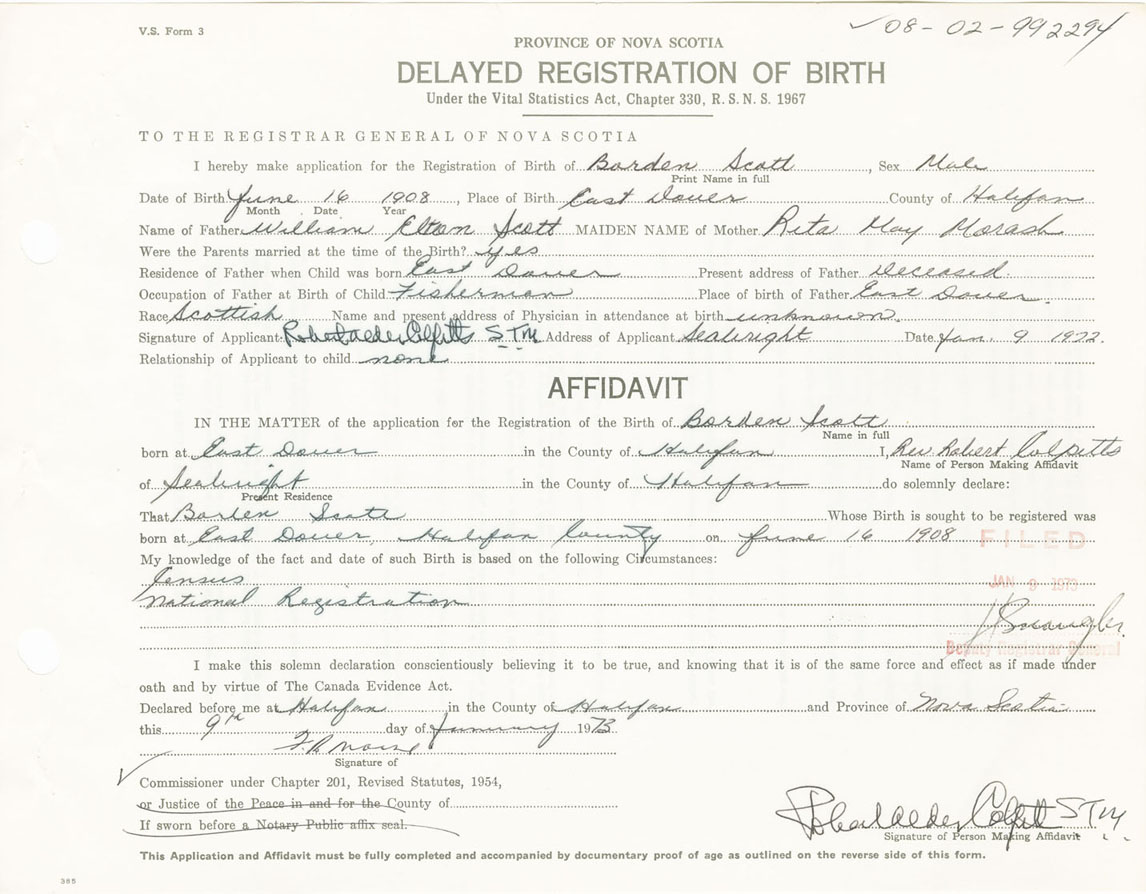 V.S. Form 3
✓08-02-992294
PROVINCE OF NOVA SCOTIA
DELAYED REGISTRATION OF BIRTH
Under the Vital Statistics Act, Chapter 330, R. S. N. S. 1967
TO THE REGISTRAR GENERAL OF NOVA SCOTIA
I hereby make application for the Registration of Birth of Borden Scott, Sex Male
Print Name in full
Date of Birth June 16 1908, Place of Birth East Dover County of Halifax
Month Date Year
Name of Father William Elton Scott MAIDEN NAME of Mother Rita May Morash
Were the Parents married at the time of the Birth? yes
Residence of Father when Child was born East Dover Present address of Father Deceased.
Occupation of Father at Birth of Child Fisherman Place of birth of Father East Dover.
Race Scottish Name and present address of Physician in attendance at birth unknown.
Signature of Applicant Robert Colpitts STM Address of Applicant Seabright Date Jan. 9 1972.
Relationship of Applicant to child none
AFFIDAVIT
IN THE MATTER of the application for the Registration of the Birth of Borden Scott
Name in full
born at East Dover in the County of Halifax I, Rev. Robert Colpitts
Name of Person Making Affidavit
of Seabright in the County of Halifax do solemnly declare:
Present Residence
That Borden Scott Whose Birth is sought to be registered was
born at East Dover, Halifax County on June 16 1908
FILED
My knowledge of the fact and date of such Birth is based on the following Circumstances:
Census
JAN 9 1973
National Registration
Deputy Registrar General
I make this solemn declaration conscientiously believing it to be true, and knowing that it is of the same force and effect as if made under
oath and by virtue of The Canada Evidence Act.
Declared before me at Halifax in the County of Halifax and Province of Nova Scotia
this 9th day of January 1973
Signature of
Commissioner under Chapter 201, Revised Statutes, 1954,
or Justice of the Peace in and for the County of
If sworn before a Notary Public affix seal.
Robert Colpitts STM
Signature of Person Making Affidavit
This Application and Affidavit must be fully completed and accompanied by documentary proof of age as outlined on the reverse side of this form.
385